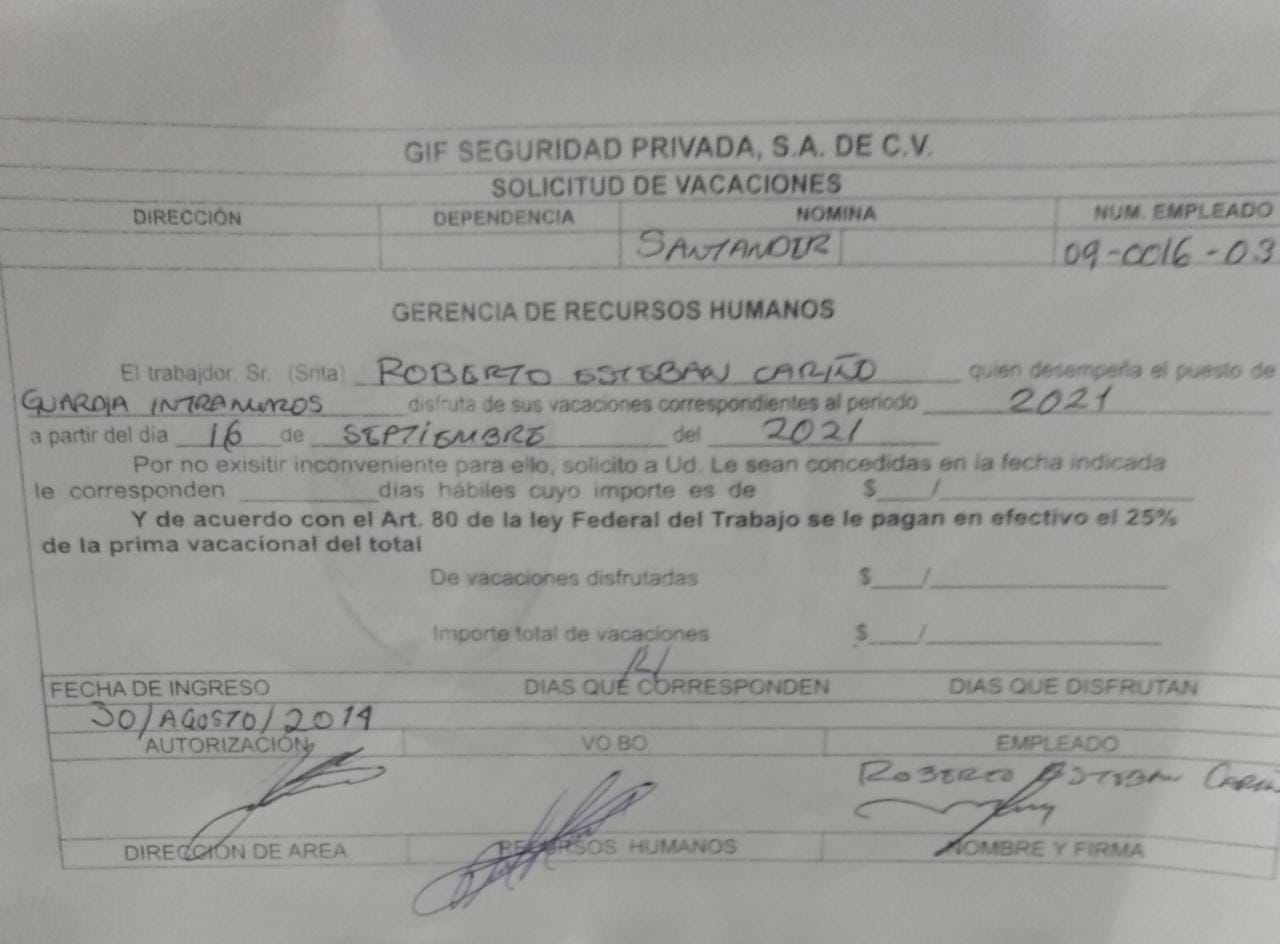 GIF SEGURIDAD PRIVADA, S.A. DE C.V.
SOLICITUD DE VACACIONES
DIRECCIÓN DEPENDENCIA NOMINA NUM. EMPLEADO
SANTANDER 09-0016-03
GERENCIA DE RECURSOS HUMANOS
El trabajdor, Sr. (Srita) ROBERTO ESTEBAN CARIÑO quien desempeña el puesto de
GUARDIA INTRAMUROS disfruta de sus vacaciones correspondientes al periodo 2021
a partir del día 16 de SEPTIEMBRE del 2021
Por no exisitir inconveniente para ello, solicito a Ud. Le sean concedidas en la fecha indicada
le corresponden ________ dias hábiles cuyo importe es de $___/________
Y de acuerdo con el Art. 80 de la ley Federal del Trabajo se le pagan en efectivo el 25%
de la prima vacacional del total
De vacaciones disfrutadas $___/________
Importe total de vacaciones $___/________
FECHA DE INGRESO DIAS QUE CORRESPONDEN DIAS QUE DISFRUTAN
30/AGOSTO/2019
AUTORIZACIÓN VO.BO. EMPLEADO
ROBERTO ESTEBAN CARIÑ
DIRECCIÓN DE AREA RECURSOS HUMANOS NOMBRE Y FIRMA